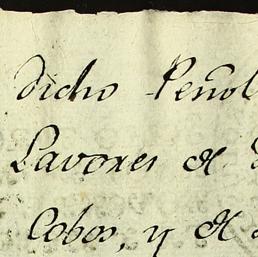 dicho Peñol
Lavores de
Cobos, y de